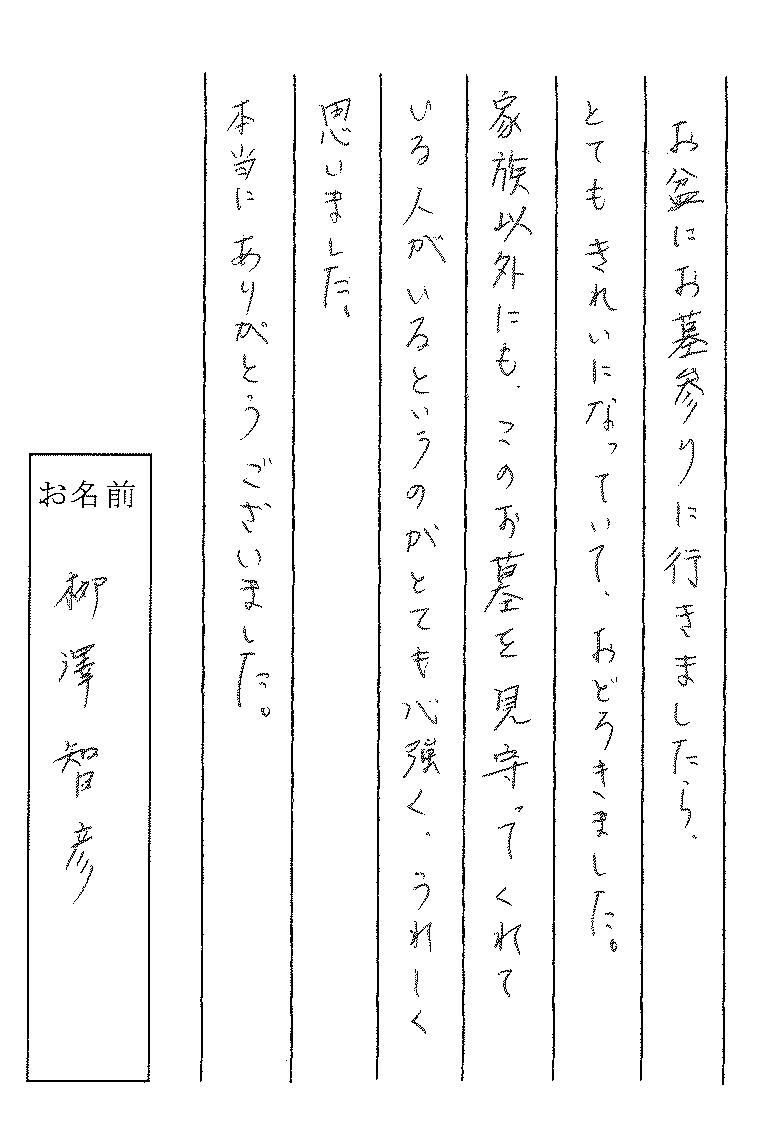 お盆にお墓参りに行きましたら、
とてもきれいになっていて、おどろきました。
家族以外にも、このお墓を見守ってくれて
いる人がいるというのがとても心強く、うれしく
思いました。
本当にありがとうございました。
お名前
柳澤智彦